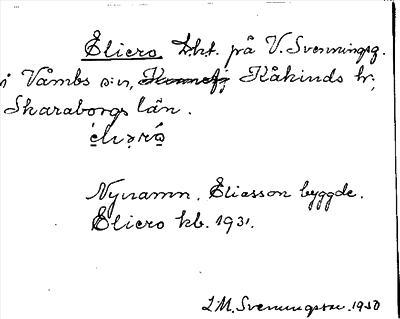 Eliero Lht. på V. Svenningsg.
i Våmbs s:n, Kåkinds hr,
Skaraborgs län.
Nynamn. Eliasson byggde.
Eliero kb. 1931.
L M. Svenungsson. 1950